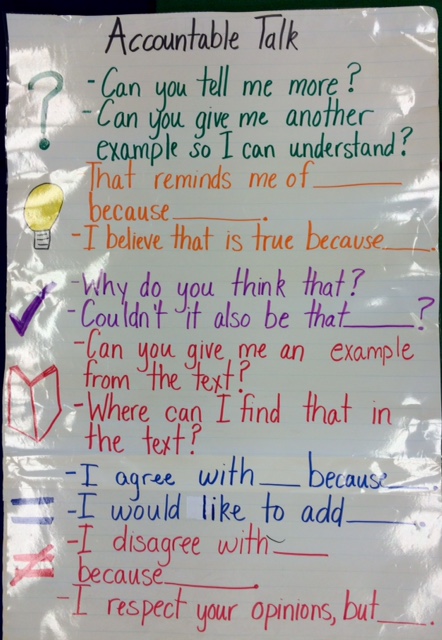 Accountable Talk
-Can you tell me more?
-Can you give me another
example so I can understand?
That reminds me of________
because________.
-I believe that is true because____.
-Why do you think that?
-Couldn't it also be that_____?
-Can you give me an example
from the text?
-Where can I find that in
the text?
-I agree with___ because___.
-I would like to add______.
-I disagree with____
because________.
-I respect your opinions, but____.